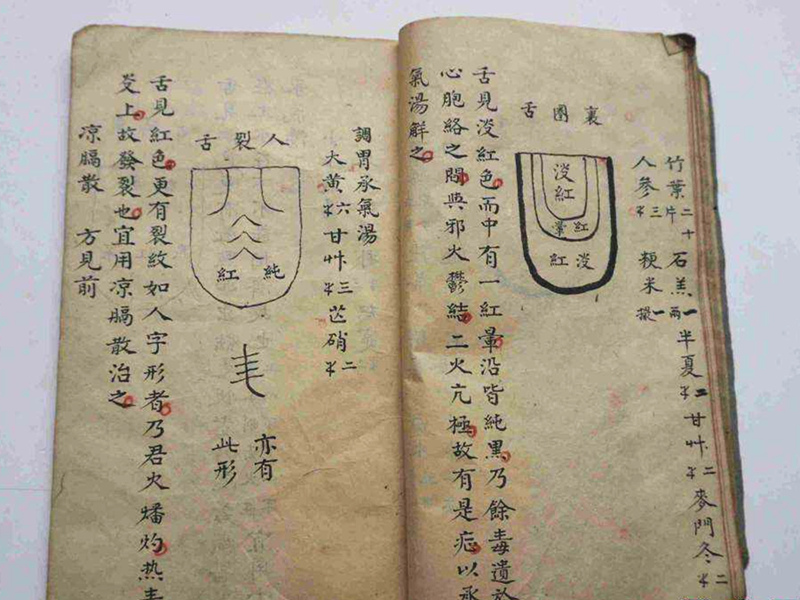 竹葉二十片 石羔一兩 半夏二 甘艸二 麥門冬二
人參三 粳米一撮
裏圍舌
淡紅
紅暈
淡紅
舌見淡紅色而中有一紅暈沿皆純黒乃餘毒遺於
心胞絡之間與邪火鬱結二火亢極故有是症以承
氣湯觧之
調胃承氣湯
大黃六 甘艸三 芒硝二
人裂舌
純紅
亦有
此形
舌見紅色更有裂紋如人字形者乃君火燔灼热毒
炎上故發裂也宜用凉膈散治之
凉膈散 方見前